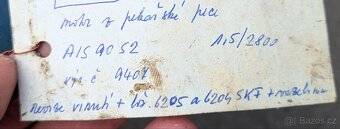 motor z pekařské pece
A1S 90 S2 1,5/2800
výr. č. 9407
Revize vinutí + lož. 6205 a 6204 SKF + vazelína
Bazoš.cz